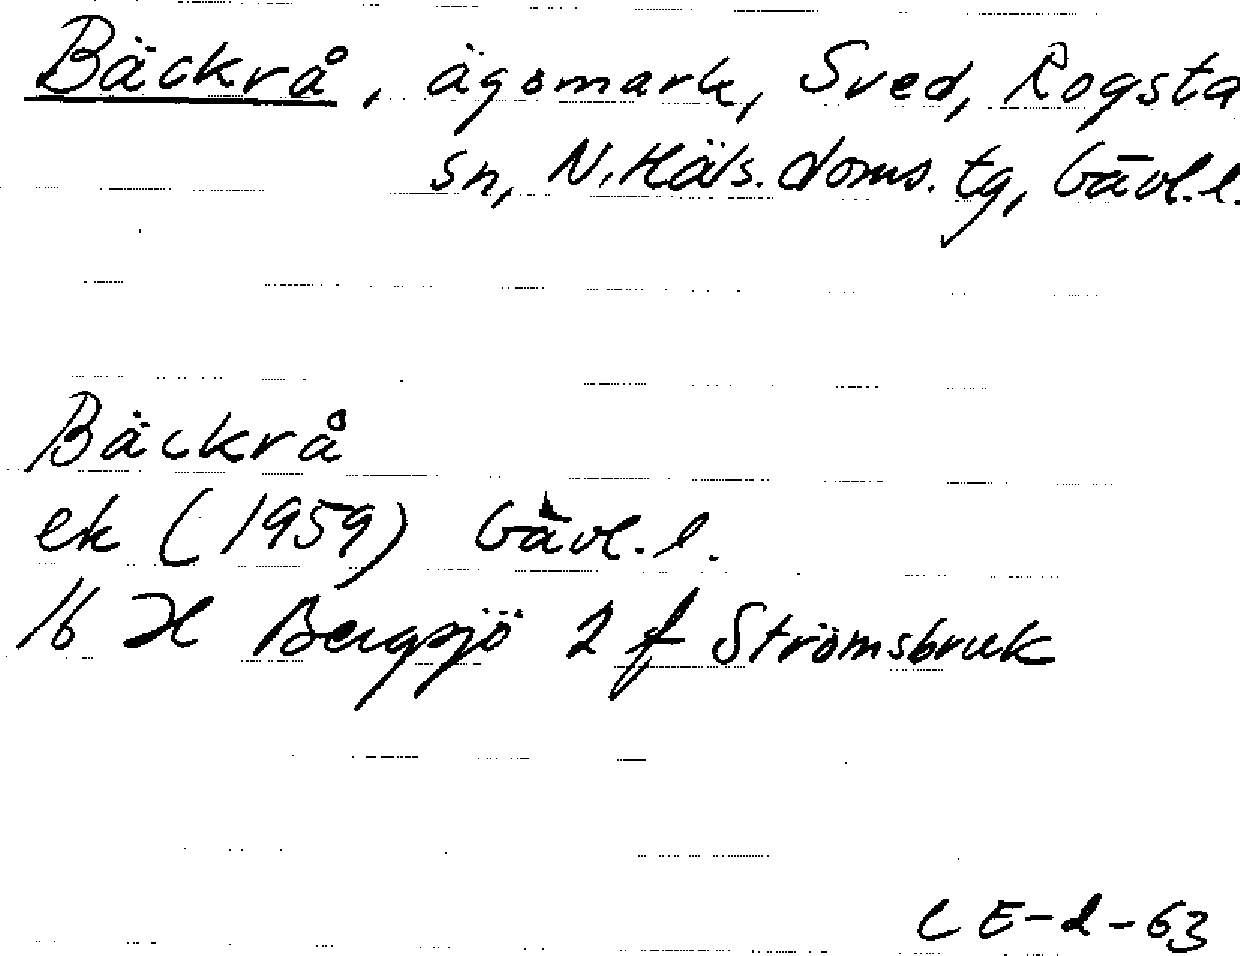 Bäckrå, ägomark, Sved, Rogsta
sn, N. Häls. doms. tg, Gävl. l.
Bäckrå
ek (1959) Gävl. l.
16 H Bergsjö 2 f Strömsbruk
CE-d-63